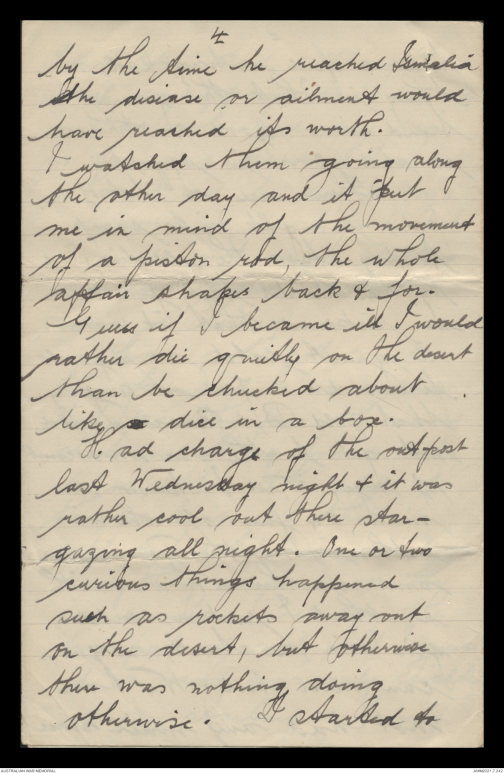 4
by the time he reached Ismalia
the disiase or ailment would
have reached its worth.
I watched them going along
the other day and it put
me in mind of the movement
of a piston rod, the whole
affair shapes back & for.
Guess if I became ill I would
rather die quietly on the desert
than be chucked about
like dice in a box.
Had charge of the out-post
last Wednesday night & it was
rather cool out there star-
gazing all night. One or two
curious things happened
such as rockets away out
on the desert, but otherwise
there was nothing doing
otherwise. I started to
AUSTRALIAN WAR MEMORIAL